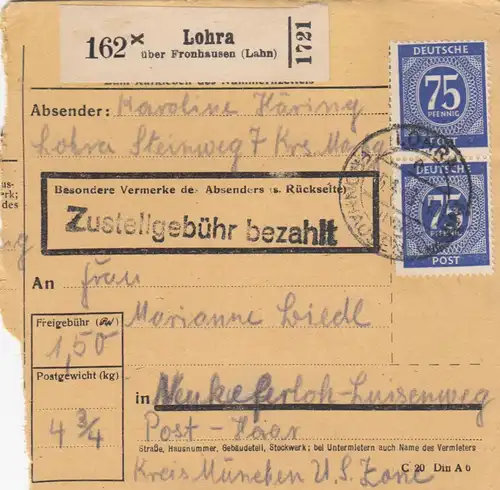 162 x Lohra
über Fronhausen (Lahn)
1721
Zum Aufkleben des Nummernzettels
Absender: Karoline Häring
Lohra Steinweg 7 Krs. Marbg
Besondere Vermerke des Absenders (s. Rückseite)
Zustellgebühr bezahlt
DEUTSCHE
75
PFENNIG
POST
LOHRA
DEUTSCHE
75
POST
An Frau
Marianne Liedl
Freigebühr
1,50
Postgewicht (kg)
4 3/4
in Neukeferloh-Luisenweg
Post-Haar
Straße, Hausnummer, Gebäudeteil, Stockwerk; bei Untermietern auch Name des Vermieters
Kreis München U.S. Zone
C 20 Din A 6